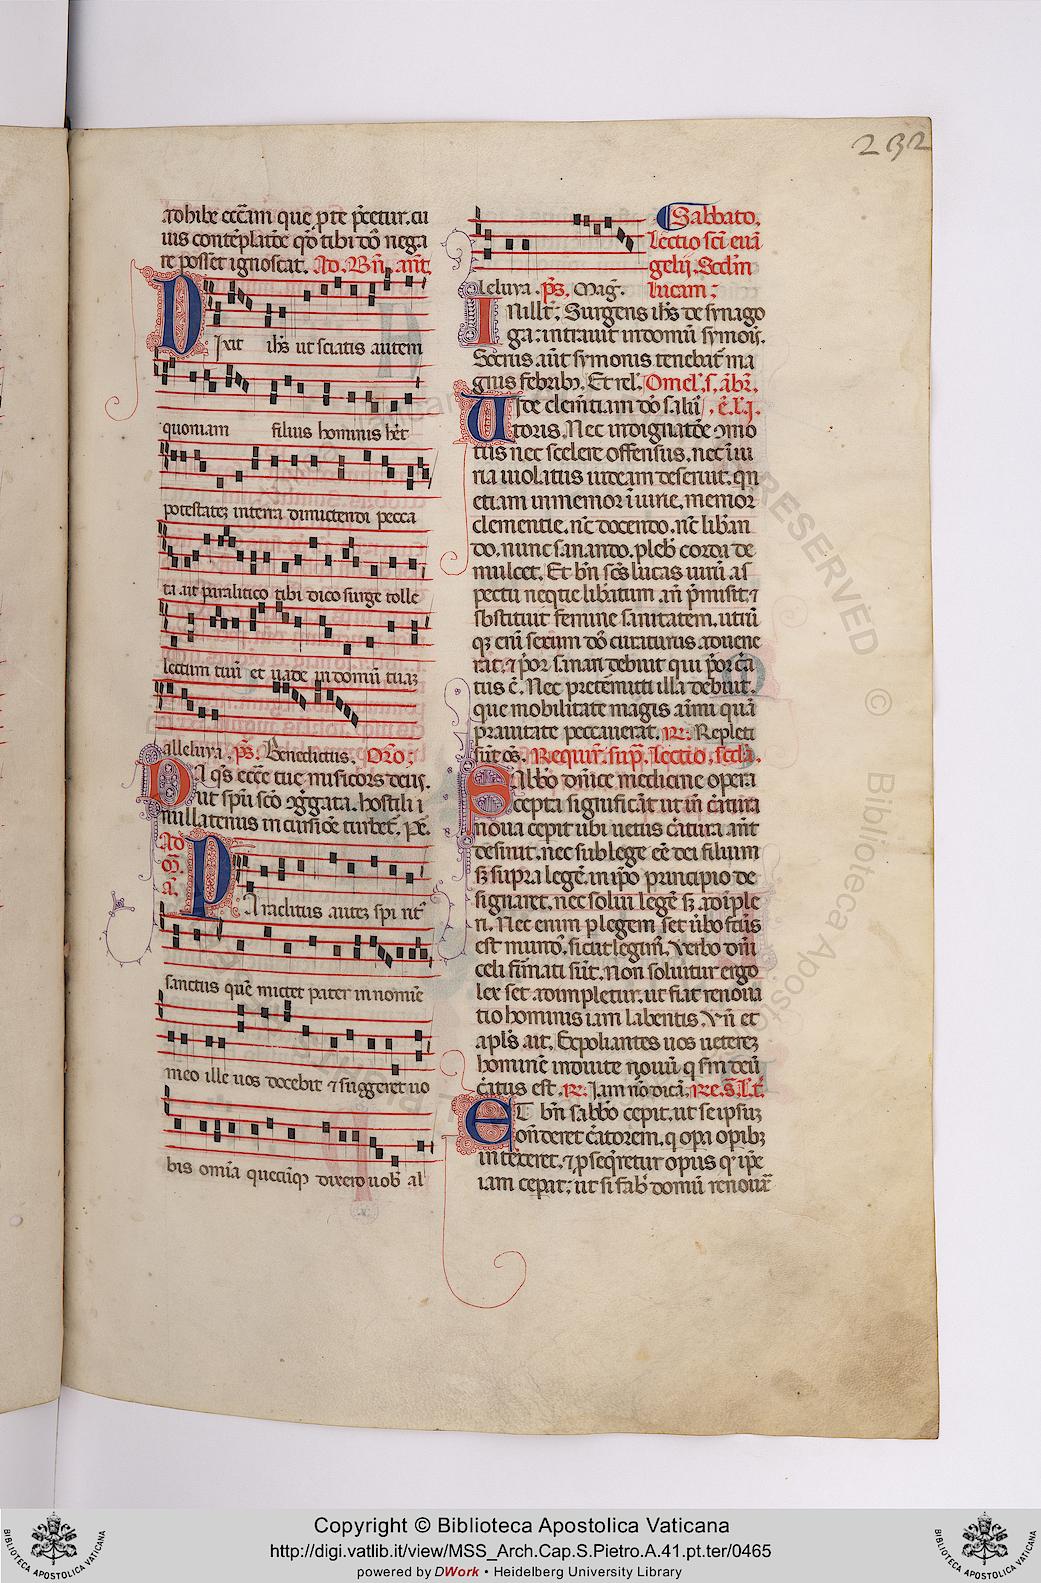 232
adhibe ecc̄am que p te p̄cetur. cu
ius contēplatōe qd̄ tibi dō nega
re posset ignoscat. Ad. Bn̄. ant̄.
Dixit ih̄s ut sciatis autem
quoniam filius hominis h̄et
potestateʒ in terra dimictendi pecca
ta. ait paralitico tibi dico surge tolle
lectum tuū et uade in domū tuaʒ
alleluya. ps̄. Benedictus. Or̄o:
Da qs̄ ecc̄e tue misericors deus.
ut sp̄u sc̄o ggata. hostili i
nullatenus incursiōe turbet̄. p̄.
Ad
M̄.
a̅.
Paraclitus auteʒ spirit⁹
sanctus quē mictet pater in nomīe
meo ille uos docebit ⁊ suggeret uo
bis omīa quecūqʒ dixero uob̄ al
leluya. ps̄. Mag̅.
Sabbato.
Lectio sc̄i euā
gelij. Scd̄m
lucam:
In illt̄. Surgens ih̄s de synago
ga: intrauit in domū symōis.
Socrus aūt symonis tenebat̄ ma
gnis febribʒ. Et rel̄. Omel̄. s. ābr̄.
Vide clemētiam dn̄i salu . c̄. l. j.
toris. Nec indignatōe ɔmo
tus nec scelere offensus. nec iniu
ria uiolatus iudeam deserit. qn̄
etiam inmemor iniurie. memor
clementie. nc̄ docendo. nc̄ liberan
do. nunc sanando. pleb̄ corda de
mulcet. Et bn̄ sc̄s lucas uirū as
pectu neque liberatum. an̄ p̄misit. ⁊
sbstituit femine sanitatem. utrū
qʒ enī sexum dn̄s curaturus aduene
rat. ⁊ p̄or sanari debuit qui p̄or c̄a
tus ē. Nec pretermitti illa debuit.
que mobilitate magis animi quā
prauitate peccauerat. R̄. Repleti
sūt oēs. Require. sup̄. Lectio. scd̄a.
Sabb̄o dn̄ice medicine opera
cepta significat ut inde c̄atura
noua cepit ubi uetus c̄atura ant̄
desiuit. nec sub lege eē dei filium
sʒ supra legē. in ip̄o principio de
signaret. nec solui legē sʒ adimple
ri. Nec enim p legem set ūbo fct̄us
est mundus. sicut legim⁹. Verbo dn̄i
celi firmati sūt. Non soluitur ergo
lex set adimpletur. ut fiat renoua
tio hominis iam labentis. Vn̄ et
apls̄ ait. Expoliantes uos ueterem
hominē induite nouū q sm̄ deū
c̄atus est. R̄. Iam nō dicā. Re. S. l. t̄.
Et bn̄ sabb̄o cepit. ut se ipsuʒ
onderet c̄atorem. q opa opibʒ
intexeret. ⁊ p̄seq̄retur opus qd̄ ip̄e
iam ceperat: ut si fab̄ domū renouar̄
Copyright © Biblioteca Apostolica Vaticana
http://digi.vatlib.it/view/MSS_Arch.Cap.S.Pietro.A.41.pt.ter/0465
powered by DWork • Heidelberg University Library